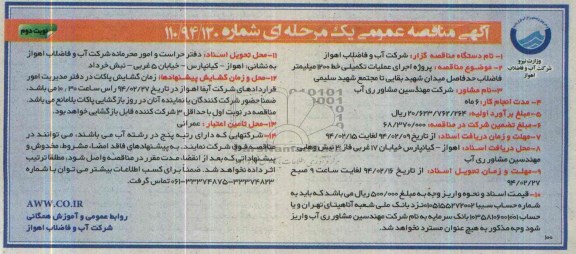 آگهی مناقصه عمومی یک مرحله ای شماره ۱۱۰/۹۴/۱۲۰
نوبت دوم
وزارت نیرو
شرکت آب و فاضلاب اهواز
۱- نام دستگاه مناقصه گزار: شرکت آب و فاضلاب اهواز
۲- موضوع مناقصه: پروژه اجرای عملیات تکمیلی خط ۱۲۰۰ میلیمتر
فاضلاب حدفاصل میدان شهید بقایی تا مجتمع شهید سلیمی
۳- نام مشاور: شرکت مهندسین مشاور ری آب
۴- مدت انجام کار: ۶ ماه
۵- مبلغ برآورد اولیه: ۲۰/۶۲۳/۷۶۲/۲۶۴ ریال
۶- مبلغ تضمین شرکت در مناقصه: ۶۸/۳۷۰/۰۰۰
۷- مهلت و زمان دریافت اسناد: از تاریخ ۹۴/۰۲/۰۹ لغایت ۹۴/۰۲/۱۵
۸- محل دریافت اسناد: اهواز - کیانپارس خیابان ۱۷ غربی فاز ۲ نبش وهابی
مهندسین مشاور ری آب
۹- مهلت و زمان تحویل اسناد: از تاریخ ۹۴/۰۲/۱۶ لغایت ساعت ۹ صبح
۹۴/۰۲/۲۷
۱۰- قیمت اسناد و نحوه واریز وجه به مبلغ ۵۰۰/۰۰۰ ریال می باشد که باید به
شماره حساب ۰۱۰۵۱۵۵۲۷۲۰۰۲ نزد بانک ملی شعبه آناهیتای تهران و یا
حساب بانک سرمایه به نام شرکت مهندسین مشاور ری آب واریز
شود وجه مذکور به هیچ عنوان مسترد نخواهد شد.
۱۱- محل تحویل اسناد: دفتر حراست و امور محرمانه شرکت آب و فاضلاب اهواز
به نشانی: اهواز - کیانپارس - خیابان ۵ غربی - نبش خرداد
۱۲- محل و زمان گشایش پیشنهادها: زمان گشایش پاکات در دفتر مدیریت امور
قراردادهای شرکت آبفا اهواز در تاریخ ۹۴/۰۲/۲۷ راس ساعت ۱۰:۳۰ می باشد،
ضمنا حضور شرکت کنندگان یا نماینده آنان در روز بازگشایی پاکات بلامانع می باشد.
مناقصه در نوبت اول با حداقل ۳ شرکت کننده قابل بازگشایی خواهد بود.
۱۳- محل تامین اعتبار: عمرانی
۱۴- شرکتهایی که دارای رتبه پنج در رشته آب می باشند، می توانند در
مناقصه فوق شرکت نمایند. به پیشنهادهای فاقد امضا، مشروط، مخدوش و
پیشنهاداتی که بعد از انقضا، مدت مقرر در مناقصه واصل شود، مطلقا ترتیب
اثر داده نخواهد شد. ضمنا برای کسب اطلاعات بیشتر می توان با شماره
۳۳۳۷۴۸۲۳-۳۳۳۷۴۸۷۵-۰۶۱ تماس گرفت.
AWW.CO.IR
روابط عمومی و آموزش همگانی
شرکت آب و فاضلاب اهواز